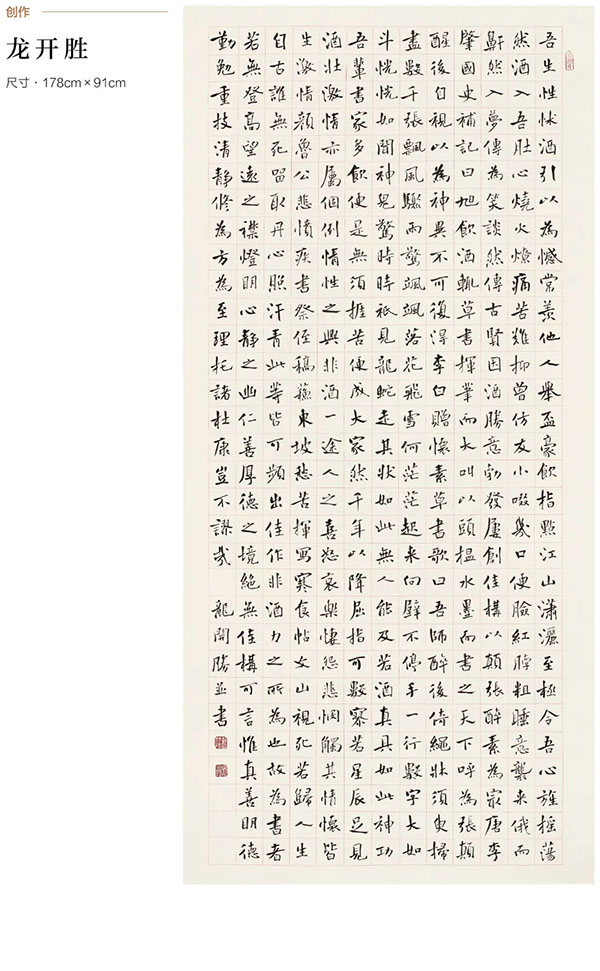 创作
龙开胜
尺寸·178cm×91cm
吾生性怵酒引以為憾常羨他人舉盃豪飲指點江山瀟灑至極令吾心旌搖蕩
然酒入吾肚心燒火燎痛苦難抑曾仿友小啜幾口便臉紅脖粗睡意襲來俄而
鼾然入夢傳為笑談然傳古賢因酒勝意勃發屢創佳構以顛張醉素為最唐李
肇國史補記曰旭飲酒輒草書揮筆而大叫以頭揾水墨而書之天下呼為張顛
醒後自視以為神異不可復得李白贈懷素草書歌曰吾師醉後倚繩牀須臾掃
盡數千張飄風驟雨驚颯颯落花飛雪何茫茫起來向壁不停手一行數字大如
斗怳怳如聞神鬼驚時時衹見龍蛇走其狀如此無人能及若酒真具如此神功
吾輩書家多飲便是無須捱苦便成大家然千年以降屈指可數寥若星辰足見
酒壯激情亦屬個例情性之興非酒一途人之喜怒哀樂悽怨悲惘觸其情懷皆
生激情顏魯公悲憤疾書祭侄稿蘇東坡愁苦揮寫寒食帖文山視死若歸人生
自古誰無死留取丹心照汗青此等皆可頻出佳作非酒力之所為也故為書者
若無登高望遠之襟燈明心靜之幽仁善厚德之境絕無佳構可言惟真善明德
勤勉重技清靜修為方為至理托諸杜康豈不謬哉 龍開勝並書